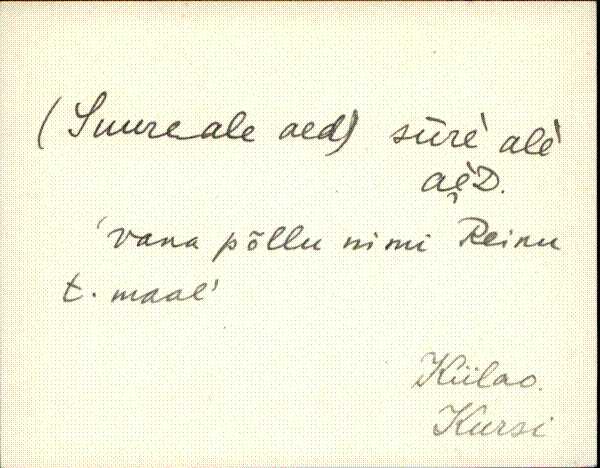 (Suure ale aed) sūre̍ ale̍
ae̯̍D.
'vana põllu nimi Reinu
t. maal'
Külao.
Kursi